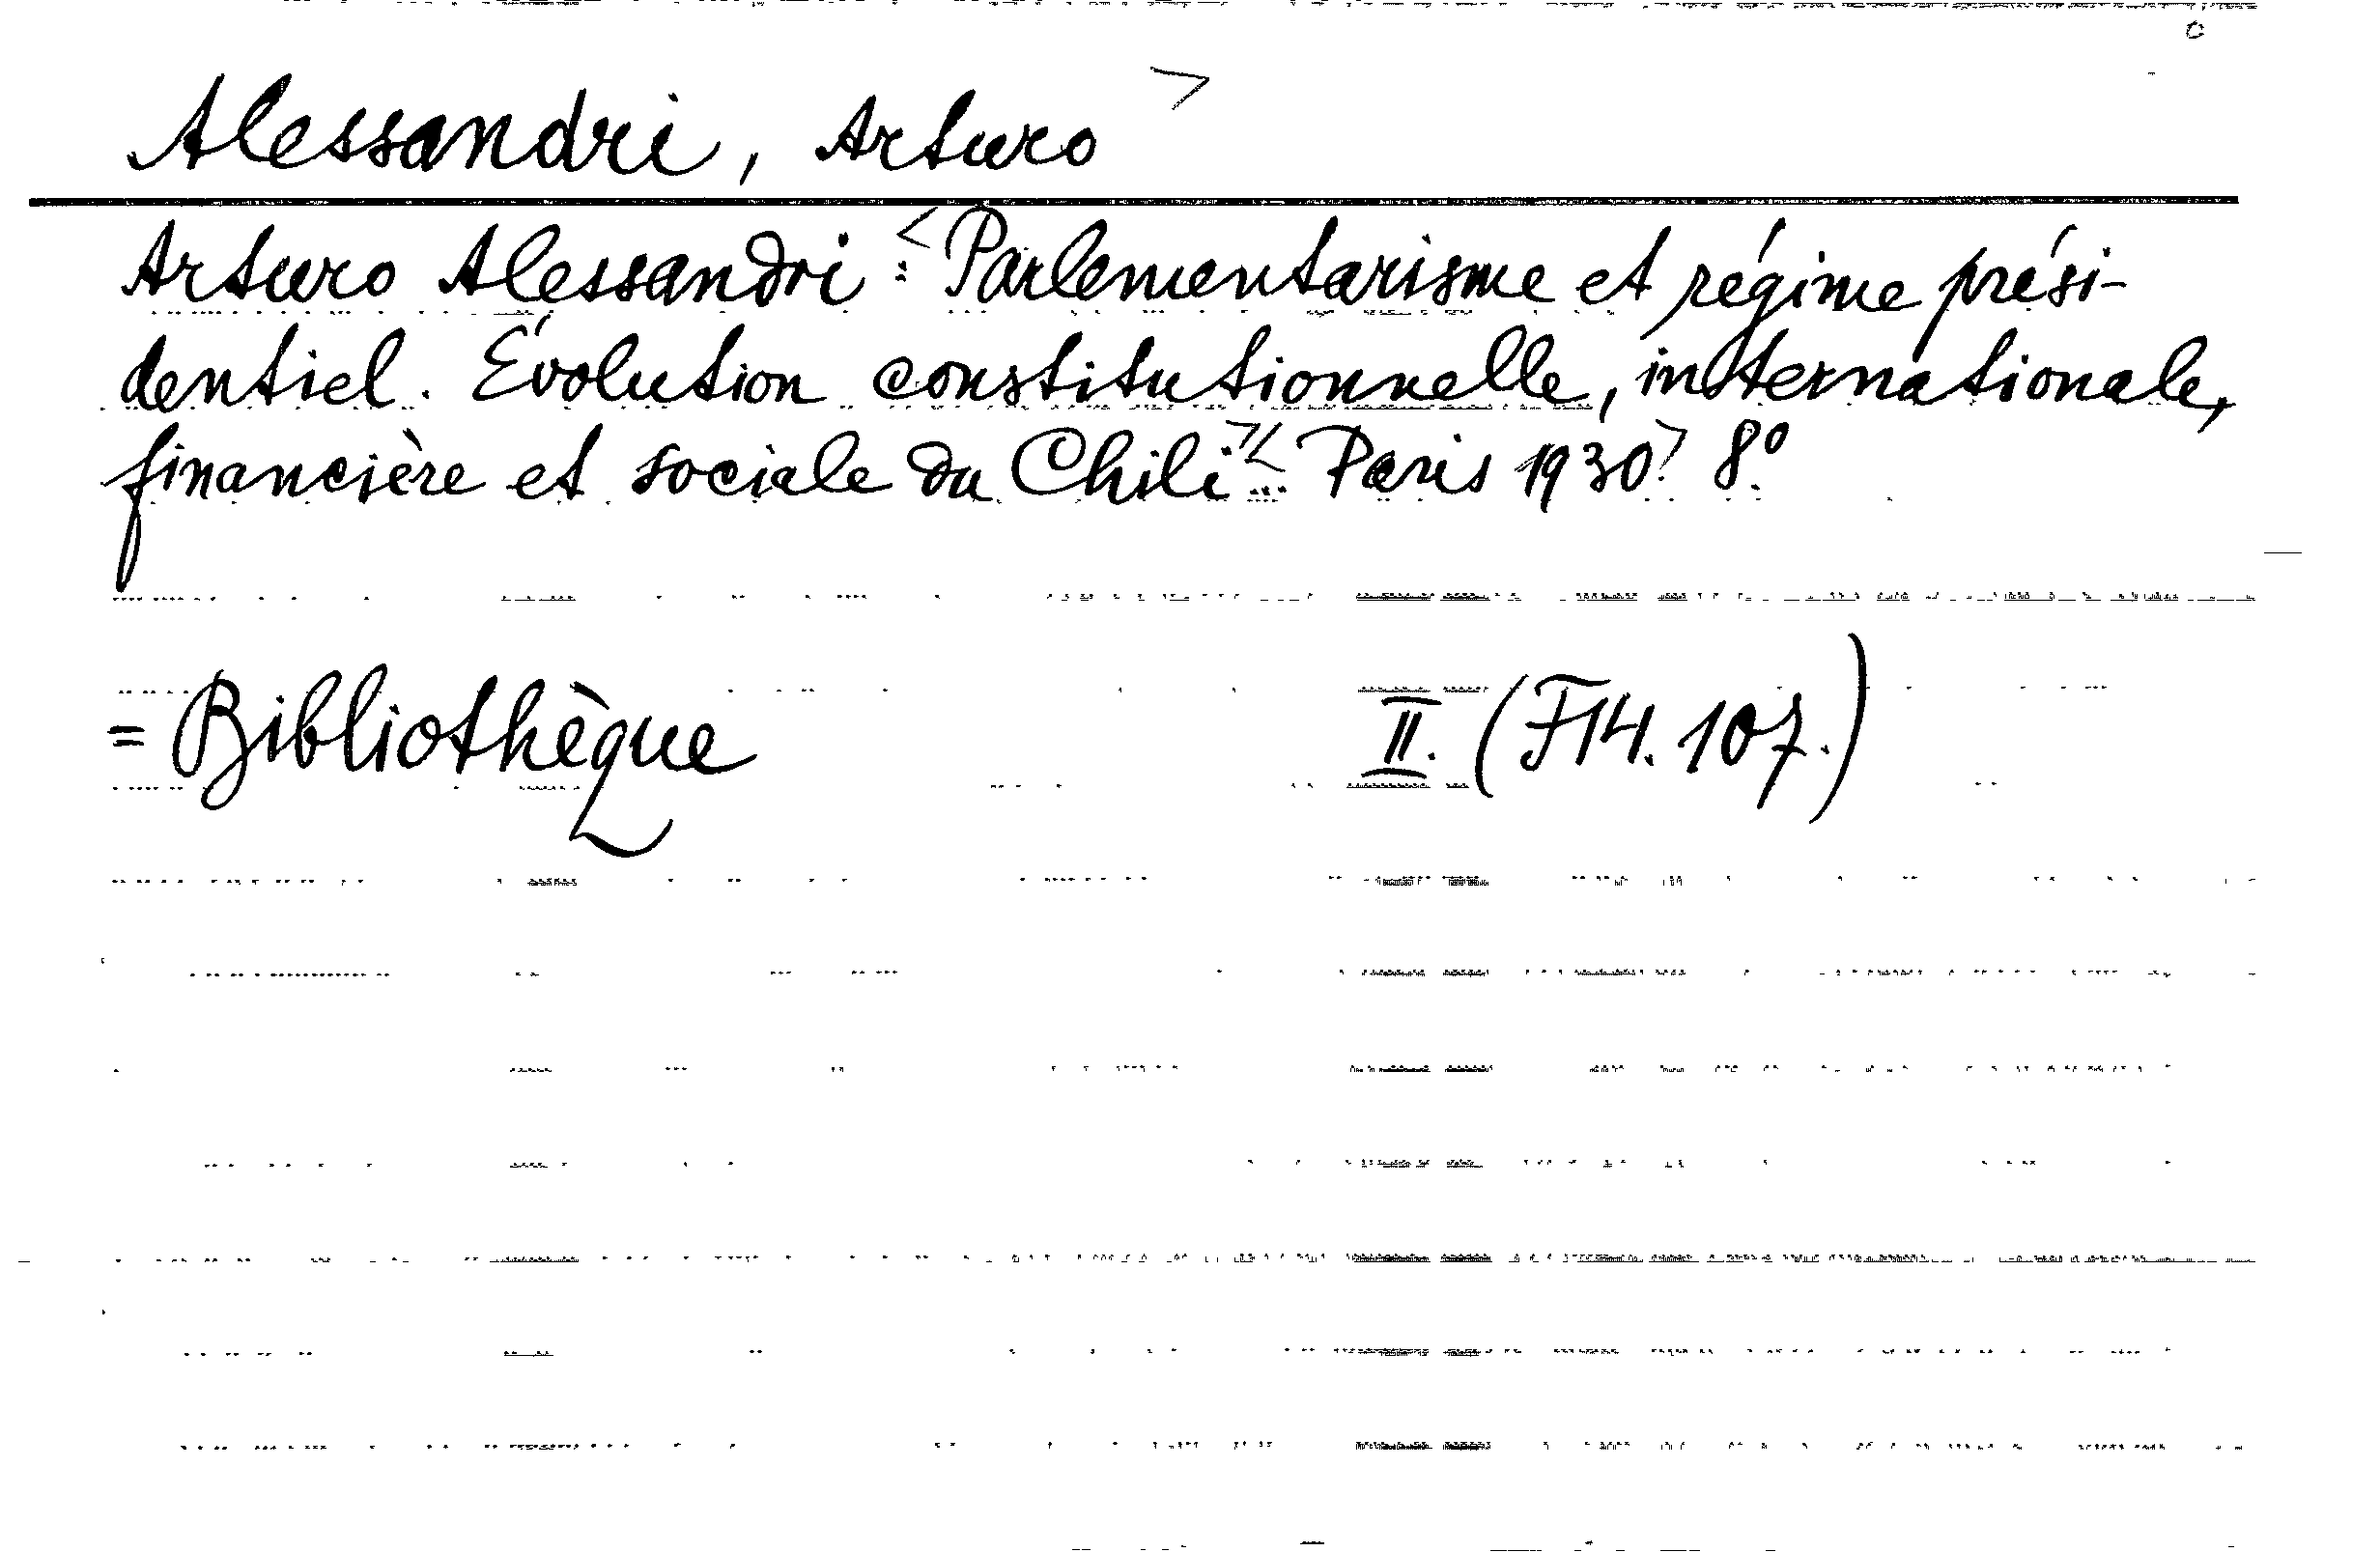 Alessandri, Arturo >
Arturo Alessandri: < Parlementarisme et régime prési-
dentiel. Évolution constitutionnelle, internationale,
financière et sociale du Chili > ... < Paris 1930.> 8°.
= Bibliothèque II. (F14.107.)